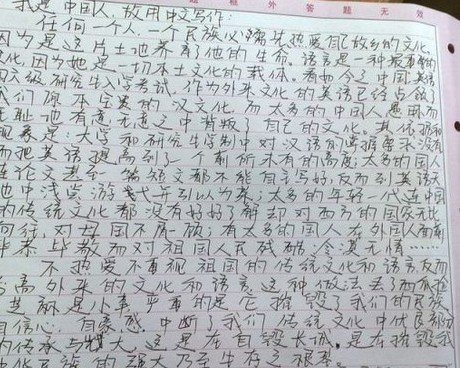 框外答题无效
我是中国人,故用中文写作:
任何一个人,一个民族必须先热爱自己故乡的文化。
因为是这片土地养了他的生命。语言是一种最重要的
文化,因为她是一切本土文化的载体。看如今之中国,英语
四六级研究生入学考试,作为外来文化的英语已经占领了
我们原本宝贵的汉文化,而太多的中国人愚昧而
无耻地有意无意之中背叛了自己的文化。其依据和
现象是:大学和研究生学制中对汉语的掌握要求没有
而把英语提高到了一个前所未有的高度;太多的国人
连作文甚至一篇短文都不能自主写好,反而到英语天
地中浅尝游戏并引以为荣;太多的年轻一代连中国
的传统文化都没有好好了解却对西方的国家无比
向往,对母国不屑一顾;有太多的国人在外国人面前
毕恭毕敬而对祖国人民残酷、冷漠无情……
不热爱不重视祖国的传统文化和语言,反而
高外来的文化和语言,这种做法丢了西瓜捡
芝麻是小事,严重的是它摧毁了我们的民族
自信心,自豪感,中断了我们传统文化中优良部分
的传承与光大。这是在自毁长城,是在摧毁我
中华民族的强大乃至生存之根基。